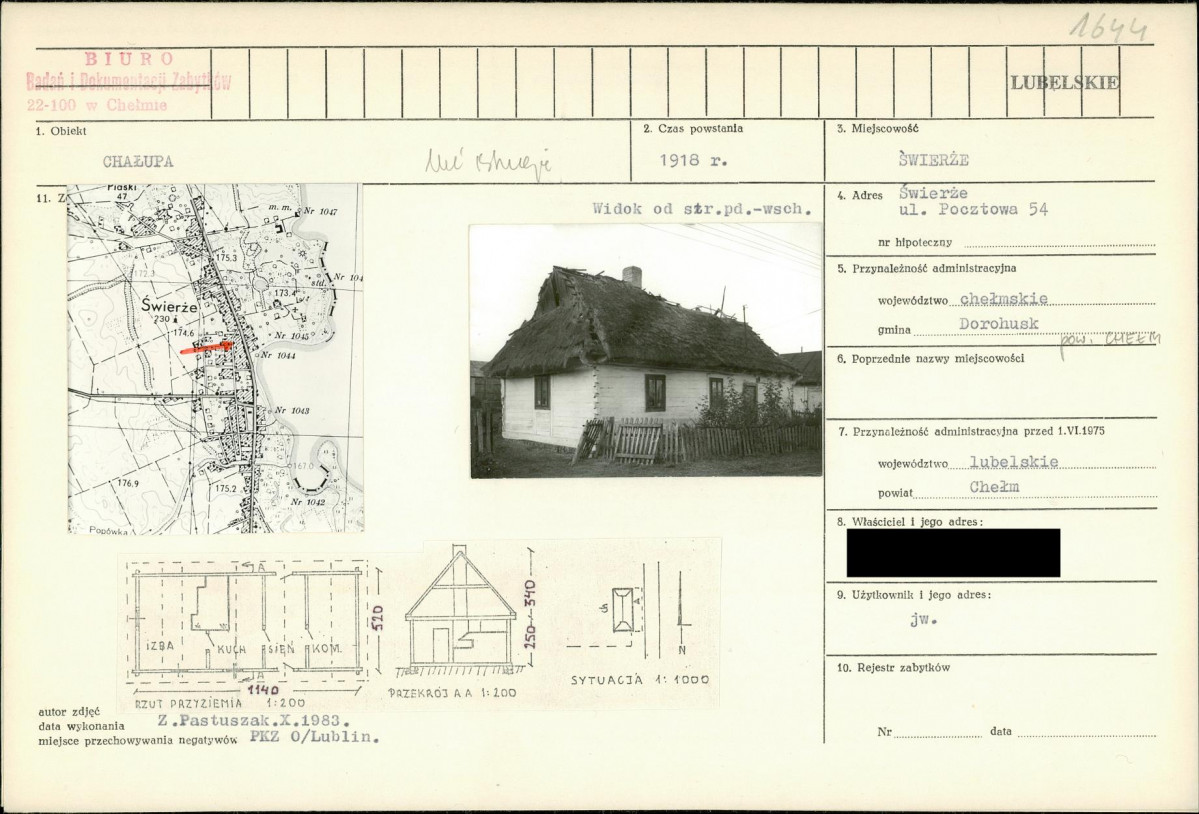 1644
BIURO
Badań i Dokumentacji Zabytków
22-100 w Chełmie
LUBELSKIE
1. Obiekt
CHAŁUPA
2. Czas powstania
1918 r.
3. Miejscowość
ŚWIERŻE
4. Adres Świerże
ul. Pocztowa 54
nr hipoteczny
5. Przynależność administracyjna
województwo chełmskie
gmina Dorohusk
pow. CHEŁM
6. Poprzednie nazwy miejscowości
7. Przynależność administracyjna przed 1.VI.1975
województwo lubelskie
powiat Chełm
8. Właściciel i jego adres:
9. Użytkownik i jego adres:
jw.
10. Rejestr zabytków
Nr data
11. Z
Widok od str.pd.-wsch.
Piaski
47
m. m.
Nr 1047
175.3
172.3
Nr 104
std.
173.4
Świerże
230
174.6
Nr 1045
Nr 1044
Nr 1043
167.0
176.9
175.2
Nr 1042
Popówka
A
IZBA
KUCH
SIEŃ
KOM.
A
520
1140
RZUT PRZYZIEMIA 1:200
250
340
PRZEKRÓJ AA 1:200
N
SYTUACJA 1:1000
autor zdjęć Z.Pastuszak.X.1983.
data wykonania
miejsce przechowywania negatywów PKZ O/Lublin.